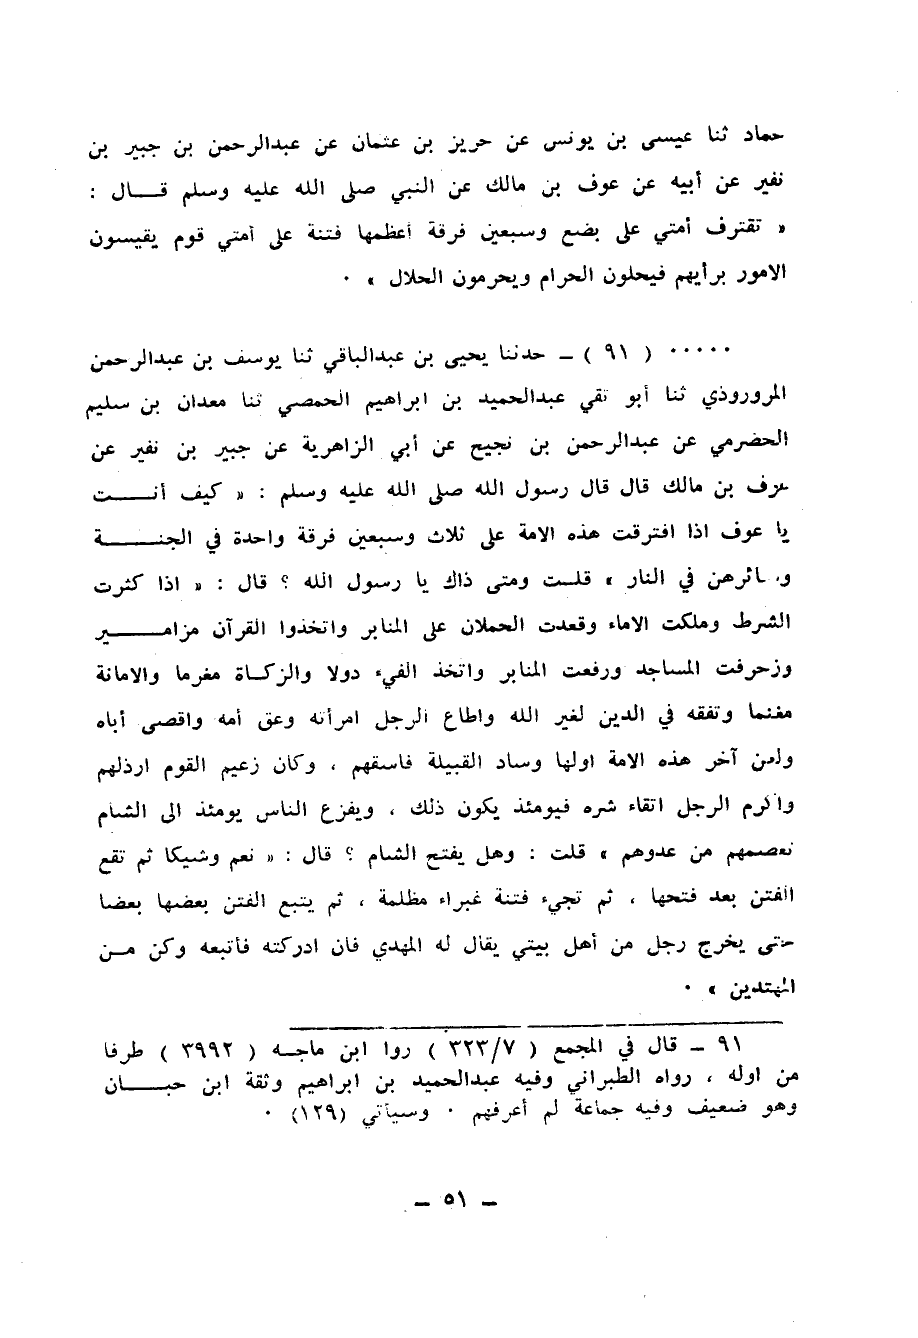 حماد ثنا عيسى بن يونس عن حريز بن عثمان عن عبدالرحمن بن جبير بن
نفير عن أبيه عن عوف بن مالك عن النبي صلى الله عليه وسلم قــال :
« تفترق أمتي على بضع وسبعين فرقة أعظمها فتنة على أمتي قوم يقيسون
الامور برأيهم فيحلون الحرام ويحرمون الحلال » ٠
٠٠٠٠٠ ( ٩١ ) ـ حدثنا يحيى بن عبدالباقي ثنا يوسف بن عبدالرحمن
المروروذي ثنا أبو تقي عبدالحميد بن ابراهيم الحمصي ثنا معدان بن سليم
الحضرمي عن عبدالرحمن بن نجيح عن أبي الزاهرية عن جبير بن نفير عن
عوف بن مالك قال قال رسول الله صلى الله عليه وسلم : « كيف أنــــت
يا عوف اذا افترقت هذه الامة على ثلاث وسبعين فرقة واحدة في الجنــــة
وسائرهن في النار » قلت ومتى ذاك يا رسول الله ؟ قال : « اذا كثرت
الشرط وملكت الاماء وقعدت الحملان على المنابر واتخذوا القرآن مزامــــير
وزخرفت المساجد ورفعت المنابر واتخذ الفيء دولا والزكاة مغرما والامانة
مغنما وتفقه في الدين لغير الله واطاع الرجل امرأته وعق أمه واقصى أباه
ولعن آخر هذه الامة اولها وساد القبيلة فاسقهم ، وكان زعيم القوم ارذلهم
واكرم الرجل اتقاء شره فيومئذ يكون ذلك ، ويفزع الناس يومئذ الى الشام
تعصمهم من عدوهم » قلت : وهل يفتح الشام ؟ قال : « نعم وشيكا ثم تقع
الفتن بعد فتحها ، ثم تجيء فتنة غبراء مظلمة ، ثم يتبع الفتن بعضها بعضا
حتى يخرج رجل من أهل بيتي يقال له المهدي فان ادركته فأتبعه وكن مــن
المهتدين » ٠
٩١ ـ قال في المجمع ( ٣٢٣/٧ ) روا ابن ماجــه ( ٣٩٩٢ ) طرفا
من اوله ، رواه الطبراني وفيه عبدالحميد بن ابراهيم وثقة ابن حبــــان
وهو ضعيف وفيه جماعة لم أعرفهم ٠ وسيأتي (١٢٩) ٠
ـ ٥١ ـ